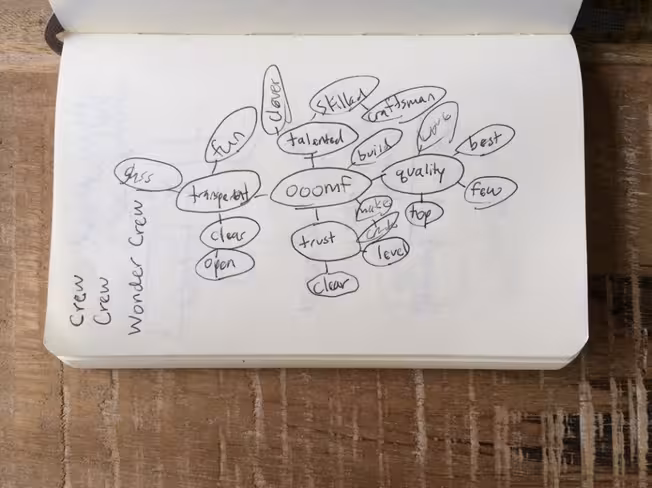 clover
skilled
craftsman
fun
talented
build
best
quality
few
transperent
ooomf
make
top
clear
trust
club
level
open
clear
Crew
Crew
Wonder Crew